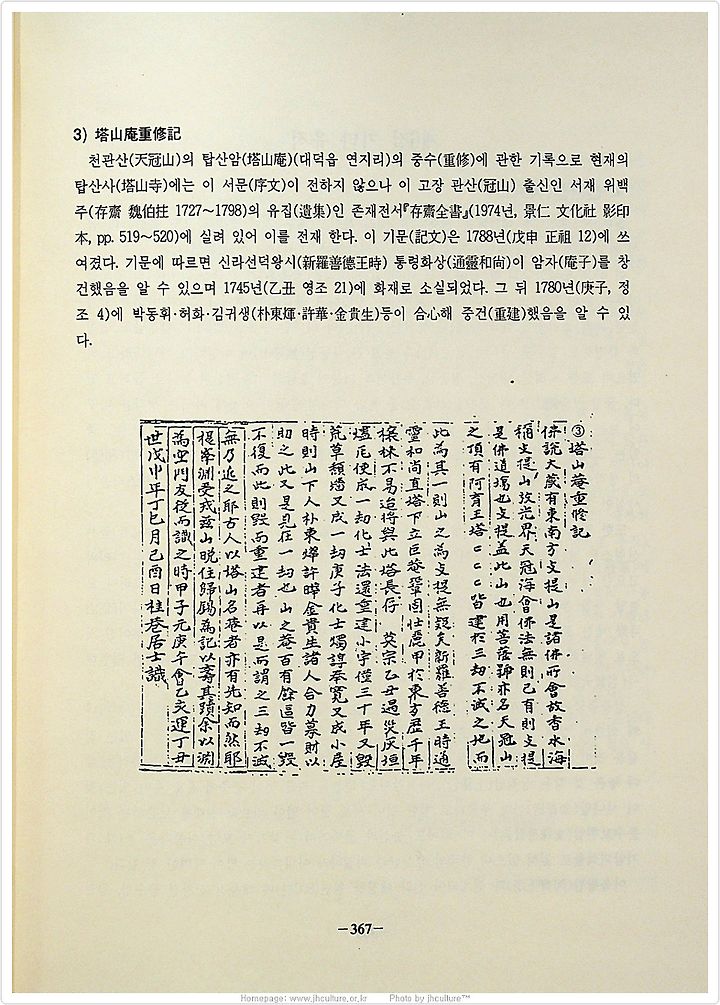 3) 塔山庵重修記
천관산(天冠山)의 탑산암(塔山庵)(대덕읍 연지리)의 중수(重修)에 관한 기록으로 현재의
탑산사(塔山寺)에는 이 서문(序文)이 전하지 않으나 이 고장 관산(冠山) 출신인 서재 위백
주(存齋 魏伯拄 1727～1798)의 유집(遺集)인 존재전서『存齋全書』(1974년, 景仁 文化社 影印
本, pp. 519～520)에 실려 있어 이를 전재 한다. 이 기문(記文)은 1788년(戊申 正祖 12)에 쓰
여졌다. 기문에 따르면 신라선덕왕시(新羅善德王時) 통령화상(通靈和尙)이 암자(庵子)를 창
건했음을 알 수 있으며 1745년(乙丑 영조 21)에 화재로 소실되었다. 그 뒤 1780년(庚子, 정
조 4)에 박동휘·허화·김귀생(朴東煇·許華·金貴生)등이 合心해 중건(重建)했음을 알 수 있
다.
③塔山菴重修記
佛說大藏有東南方支提山是諸佛所會故香水海
稱支提山放光界天冠海會佛法無則已有則支提
是佛道場也支提盖此山也用菩薩號亦名天冠山
之頂有阿育王塔 皆建於三劫不滅之地而
此為其一則山之為支提無疑矣新羅善德王時通
靈和尙直塔下立巨菴鞏固壯麗甲於東方歷千年
不易追將與此塔長存 英宗乙丑遇災灰垣
尾使成一劫化士法還重建小宇僅三十年又毁
荒草頹墻又成一劫庚子化士 奉寬又成小屋
時則山下人朴東煒許曄金貴生諸人合力募財以
助之此又是見在一劫也山之菴百有餘區皆一毁
不復而此則毁而重建者再以是所謂之三劫不滅
無乃近之耶古人以塔山名菴者亦有先知而然耶
提舉淵受戒玆山晩住歸 為記以壽其蹟余以淵
為空門友從而識之時甲子元庚午會乙亥運丁丑
世戊申年丁巳月己酉日桂巷居士識
－367－
Homepage: www.jhculture.or.kr Photo by jhculture™